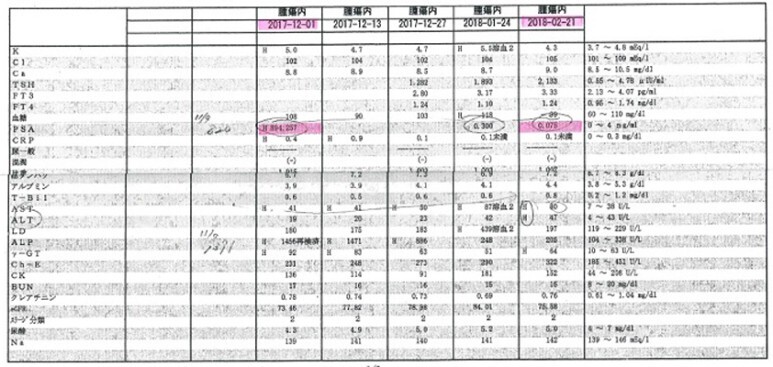 腫瘍内 腫瘍内 腫瘍内 腫瘍内 腫瘍内
2017-12-01 2017-12-13 2017-12-27 2018-01-24 2018-02-21
K H 5.0 4.7 4.7 H 5.5溶血2 4.3 3.7 ～ 4.8 mEq/l
Cl 102 104 102 104 105 101 ～ 109 mEq/l
Ca 8.8 8.9 8.5 8.7 9.0 8.5 ～ 10.5 mg/dl
TSH 1.893 2.133
FT3 2.80 3.17 3.33 2.13 ～ 4.07 pg/ml
FT4 1.24 1.10 1.24 0.95 ～ 1.74 ng/dl
血糖 108 90 103 H 118 99 60 ～ 110 mg/dl
PSA H 894.257 0.300 0.078 0 ～ 4 ng/ml
CRP H 0.4 H 0.9 0.1 0.1未満 0.1未満 0 ～ 0.3 mg/dl
尿一般
(-) (-) (-) (-)
アルブミン 3.9 3.9 4.1 4.1 4.4 3.8 ～ 5.3 g/dl
T-Bil 0.6 0.5 0.6 0.6 0.8
AST H 41 H 41 H 50 H 57溶血2 H 50 7 ～ 38 U/L
ALT 19 20 23 42 H 47 4 ～ 43 U/L
LD 180 175 183 H 439溶血2 197 119 ～ 229 U/L
ALP H 1456再検済 H 1471 H 886 248 205 104 ～ 338 U/L
γ-GT H 92 H 83 63 81 H 64 10 ～ 63 U/L
Ch-E 231 248 273 290 322
CK 136 114 91 181 152
BUN 17 16 16 15 16 8 ～ 20 mg/dl
クレアチニン 0.78 0.74 0.73 0.69 0.76 0.61 ～ 1.04 mg/dl
eGFR 73.46 77.82 78.98 84.01
ステージ分類 2 2 2 2 2
尿酸 4.3 4.9 5.0 5.2 5.0
Na 139 141 140 141 142 139 ～ 146 mEq/l